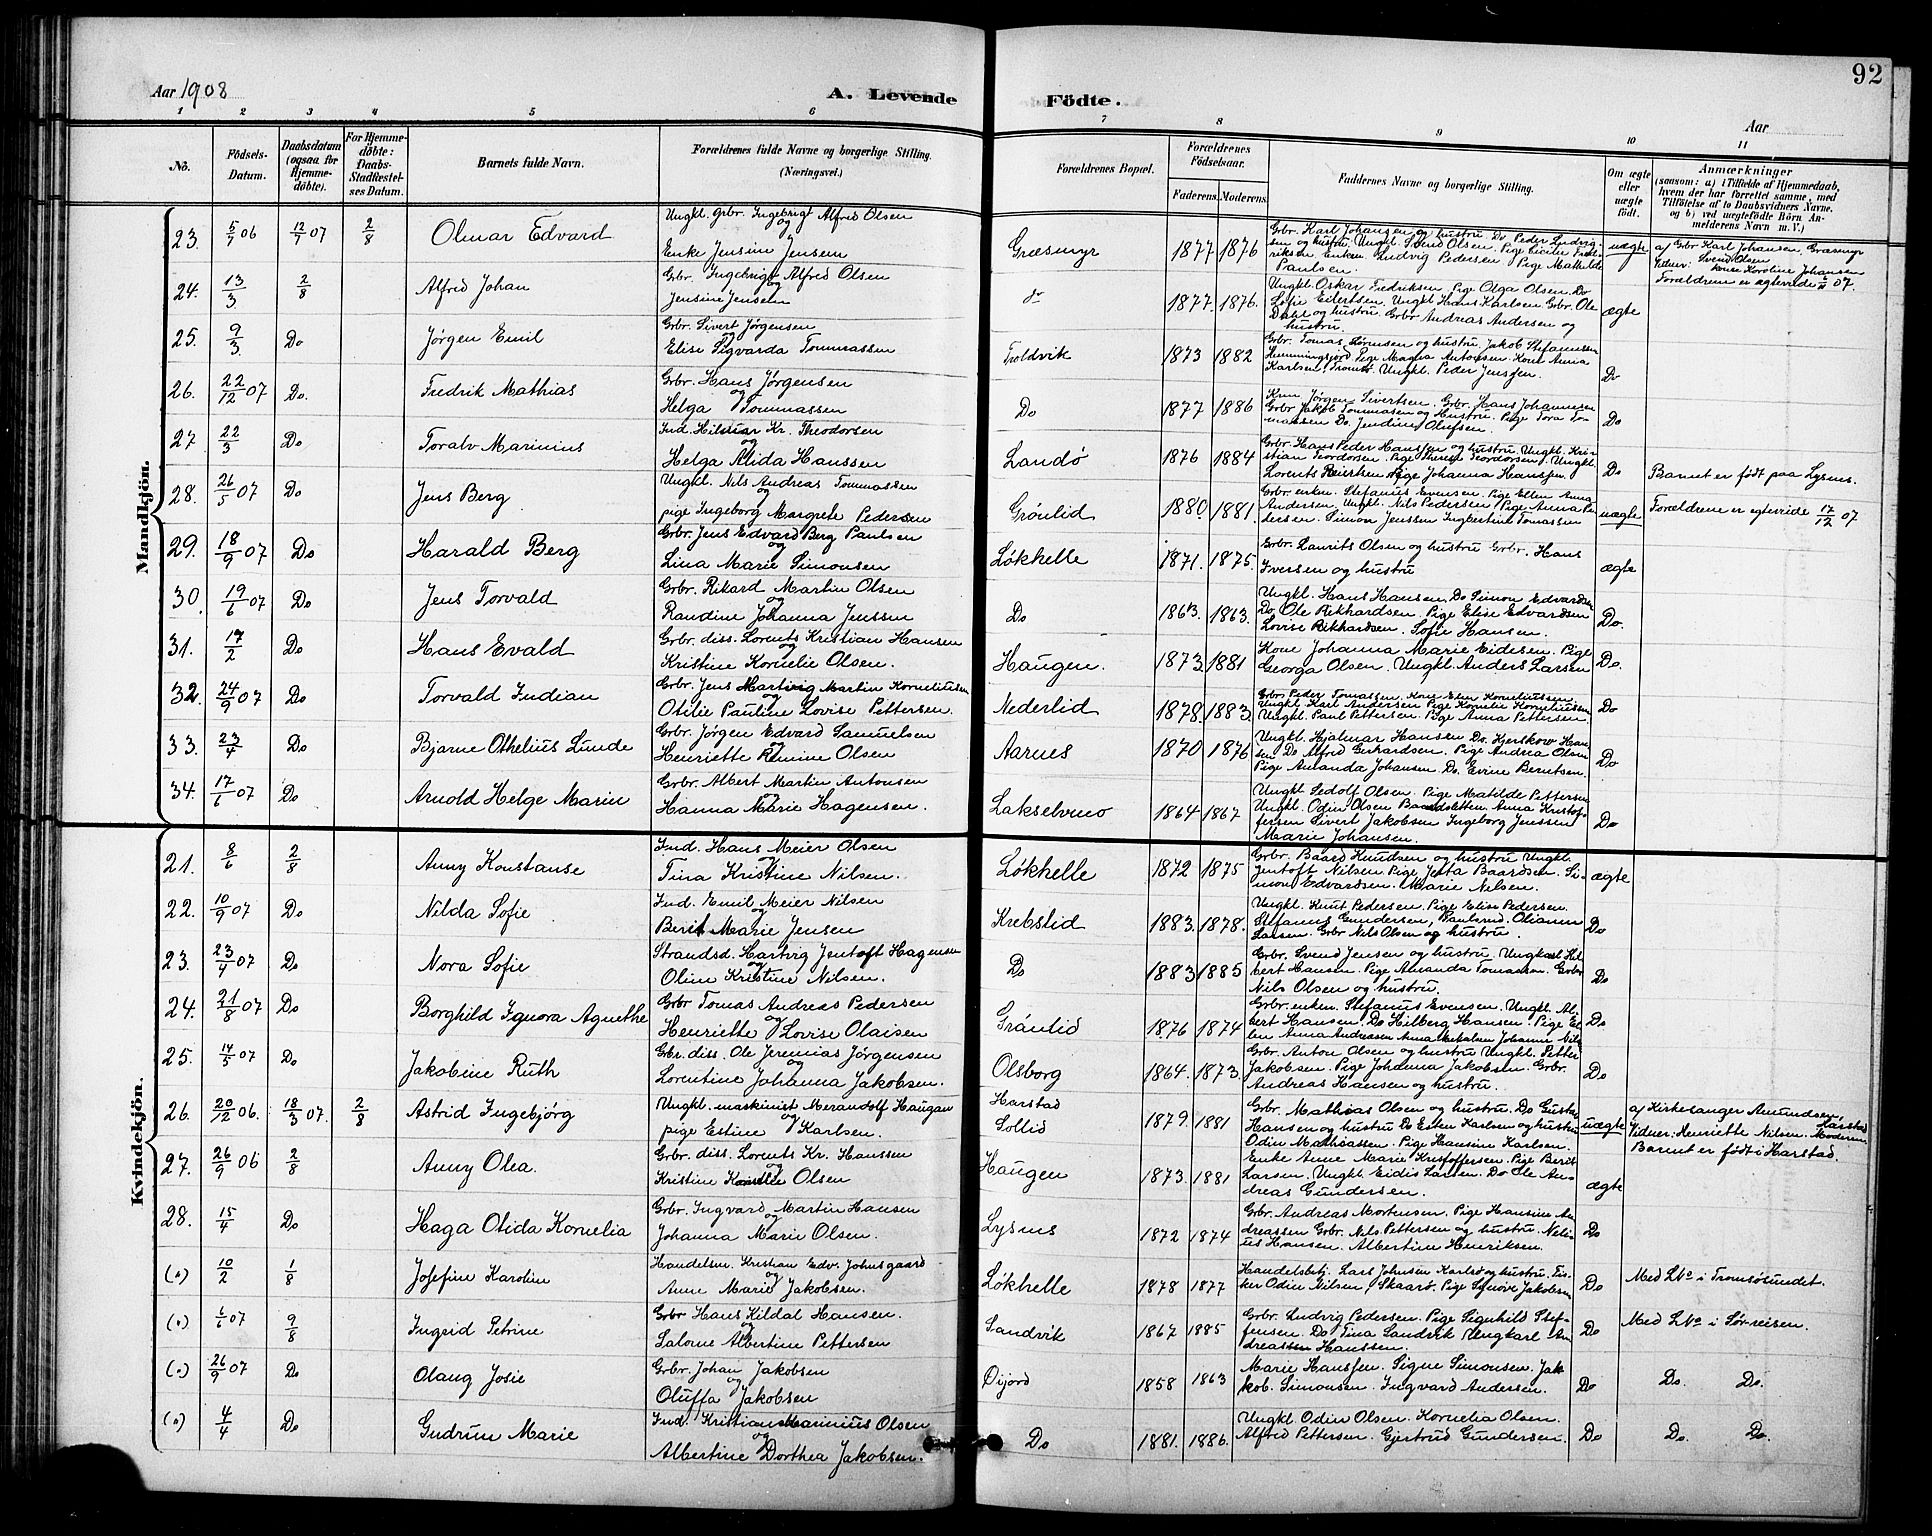 92
Aar 1908 A. Levende Födte. Aar
1 2 3 4 5 6 7 8 9 10 11
No. Födsels-Datum. Daabsdatum (ogsaa for Hjemmedöbte). For Hjemmedöbte: Daabs-Stadfestelses Datum. Barnets fulde Navn. Forældrenes fulde Navne og borgerlige Stilling. (Næringsvei.) Forældrenes Bopæl. Forældrenes Födselsaar. Faderens. Moderens. Faddernes Navne og borgerlige Stilling. Om ægte eller uægte födt. Anmærkninger (saasom: a) i Tilfælde af Hjemmedaab, hvem der har forrettet samme, med Tilföielse af to Daabsvidners Navne, og b) ved uægtefödte Börn Anmelderens Navn m. V.)
Mandkjön.
23. 5/7 06 12/7 07 2/8 Olmar Edvard Ungkl. Grbr. Ingebrigt Alfred Olsen og Enke Jensine Jensen Græsmyr 1877 1876 Grbr. Karl Johansen og hustru Do Peder Ludvigsen og hustru. Ungkl. Svend Olsen. Pige Fredriksen Enken Ludvig Pedersen Pige Mathilde Paulsen. uægte a/ Grbr Karl Johansen, Græsmyr Vidner: Svend Olsen kone Karoline Johansen Forældrene er ægteviede 07.
24. 13/3 2/8 Alfred Johan Grbr. Ingebrigt Alfred Olsen og Jensine Jensen do 1877 1876 Ungkl. Oskar Fredriksen Pige Olga Olsen. Do Sofie Eilertsen. Ungkl. Hans Karlsen. Grbr. Ole Dahl og hustru. Grbr Andreas Andersen og hustru. ægte
25. 9/3 Do Jørgen Emil Grbr. Sivert Jørgensen Elise Sigvarda Tommassen Troldvik 1873 1882 Grbr. Tomas Sørensen og hustru. Jakob Stefanussen Hemmingsjord Pige Magna Antonsen. Kone Anna Karlsen, Tromsø. Ungkl. Peder Jenssen. Do
26. 22/12 07 Do. Fredrik Mathias Grbr. Hans Jørgensen og Helga Tommassen Do 1877 1886 Jørgen Sivertsen. Grbr. Hans Johannesen Grbr Jakob Tommasen og Hustru. Pige Tora Tomassen Do. Jendine Olufsen. Do
27 22/3 Do Toralv Marinius Ind. Hilmar Kr. Theodorsen og Helga Alida Hanssen Landø 1876 1884 Grbr. Hans Peder Hanssen og hustru Ungkl. Kristian Teordorsen. Pige Therese Teordorsen. Ungkl. Lorents Pige Johanna Hanssen. Do Barnet er født paa Lysnes.
28. 26/5 07 Do Jens Berg Ungkl. Nils Andreas Tommassen og pige Ingeborg Margrete Pedersen Grønlid 1880. 1881. Grbr. enkem. Stefanus Evensen. Pige Ellen Anna Andersen. Ungkl. Nils Pedersen Pige Anna Pedersen. Simon Jenssen Ingbertine Tomassen uægte Forældrene er egteviede 17/12 07
29. 18/9 07 Do Harald Berg Grbr. Jens Edvard Berg Paulsen og Lina Marie Simonsen Løkhelle 1871. 1875. Grbr. Laurits Olsen og hustru Grbr. Hans Iversen og hustru ægte
30. 19/6 07 Do Jens Torvald Grbr. Rikard Martin Olsen og Randine Johanna Jenssen Do 1863. 1863. Ungkl. Hans Hansen. Do Simon Edvardsen Do Ole Rikhardsen. Pige Elise Edvardsen Lovise Rikhardsen. Sofie Hansen. Do.
31. 17/2 Do Hans Evald Grbr. diss. Lorents Kristian Hansen og Kristine Kornelie Olsen. Haugen. 1873 1881 Kone Johanna Marie Eidesen. Pige Georga Olsen. Ungkl. Anders Larsen Do.
32. 24/9 07 Do Torvald Indian Grbr. Jens Hartvig Martin Korneliusen og Otilie Pauline Lovise Pettersen. Nederlid 1878. 1883. Grbr. Peder Tomassen. Kone Elen Korneliussen Ungkl Karl Andersen Pige Kornelie Korneliussen Ungkl. Paul Pettersen. Pige Anna Pettersen. Do
33. 23/4 Do Bjarne Othelius Lunde Grbr. Jørgen Edvard Samuelsen og Henriette Olsen Aarnes 1870 1876 Ungkl. Hjalmar Hansen Do. Kjerskow Hansen Do Alfred Gerhardsen. Pige Andrea Olsen Pige Amanda Johansen. Do. Evine Berntsen. Do
34. 17/6 07 Do Arnold Helge Marin Grbr. Albert Martin Antonsen og Hanna Marie Hagensen. Lakselvmo 1864 1867 Ungkl Sedolf Olsen. Pige Matilde Pettersen Ungkl. Odin Olsen Baardsletten Anna Kristoffersen Sivert Jakobsen Ingeborg Jenssen Marie Johansen. Do
Kvindekjön.
21. 8/6 2/8 Anny Konstanse Ind. Hans Meier Olsen og Tina Kristine Nilsen. Løkhelle 1872 1875 Grbr. Baard Knudsen og hustru Ungkl. Jentoft Nilsen Pige Jetta Baardsen. Simon Edvardsen. Marie Nelsen. ægte
22. 10/9 07 Do Nilda Sofie Ind. Emil Meier Nilsen og Berit Marie Jensen Krebstid 1883. 1878. Ungkl. Knut Pedersen. Pige Elise Pedersen. Stefanus Gundersen, Oliann Larsen. Grbr Nils Olsen og hustru. Do
23. 23/4 07 Do Nora Sofie Strandsd. Hartvig Jentoft Hagensen og Oline Kristine Nilsen. Do 1883 1885 Grbr. Svend Jensen og hustru. Ungkarl Hilbert Hansen. Pige Amanda Tomasson. Grbr Nils Olsen og hustru. Do
24. 21/8 07 Do Borghild Ignora Agnethe Grbr Tomas Andreas Pedersen og Henriette Lovise Olaisen Grönlid 1876 1874 Grbr. enkem. Stefanus Evensen. Ungkl. Albert Hansen. Do Hilberg Hansen. Pige Ellen Anna Andreasen Anna Johanne Nils Do
25. 14/5 07 Do Jakobine Ruth Gbr. diss. Ole Jeremias Jørgensen og Lorentine Johanna Jakobsen. Olsborg 1864. 1873. Grbr. Anton Olsen og hustru Ungkl. Petter Jakobsen. Pige Johanna Jakobsen. Grbr. Andreas Hansen og hustru. Do
26. 20/12 06. 18/3 07. 2/8 Astrid Ingebjørg Ungkl. maskinist Merandolf Haugan og pige Estine Karlsen. Harstad Sollid 1879. 1881 Grbr. Mathias Olsen og hustru. Do Gustav Hansen og hustru Do Esten Karlsen og hustru Odin Mathiassen. Pige Hansine Karlsen. uægte a/ Kirkesanger Amundsen, Harstad Vidner: Henriette Nilsen. Moderen Barnet er født i Harstad.
27. 26/9 06 2/8 Anny Olea. Grbr. diss. Lorents Kr. Hanssen og Kristine Olsen Haugen 1873. 1881 Enke Anne Marie Kristoffersen. Pige Berit Larsen. Ungkl. Eidis Larsen. Do Ole Andreas Gundersen. ægte
28. 15/4 Do Haga Otida Kornelia Grbr. Ingvard Martin Hansen og Johanna Marie Olsen. Lysnes 1872 1874 Grbr. Andreas Mortensen. Pige Hansine Andreassen Grbr. Nels Pettersen og hustru. Nelius Hansen. Albertine Henriksen. Do
(a) 10/2 1/8 Josefine Karoline Handelsm. Kristian Edv. Johnsgaard og Anne Marie Jakobsen. Løkhelle 1878 1877 Handelsbetj. Lars Johnsen Karlsø og hustru. Fisker Odin Nilsen, Skaarø. Pige Synøve Jakobsen Do Med L.No i Tromsøsundet.
(o) 6/6 07 9/8 Ingrid Petrine Grbr Hans Kildal Hansen. og Salome Albertine Pettersen Sandvik 1867 1885 Grbr. Ludvig Pedersen. Pige Signhild Steffensen. Do Tina Sandvik Ungkarl Andreassen Hanssen. Do Med L.No i Sør-reisen.
(o) 26/9 07 Do Olaug Josie Grbr. Johan Jakobsen og Oluffa Jakobsen Øijord 1858 1863 Marie Hanssen. Signe Simonsen. Jakob. Simonsen. Ingvard Andersen. Do Do. Do.
(a) 4/4 Do Gudrun Marie Ind. Kristian Marinius Olsen og Albertine Dorthea Jakobsen. Do 1881. 1886. Ungkl. Odin Olsen. Kornelia Olsen. Alfred Pettersen. Gjertrud Gundersen. Do Do. Do.